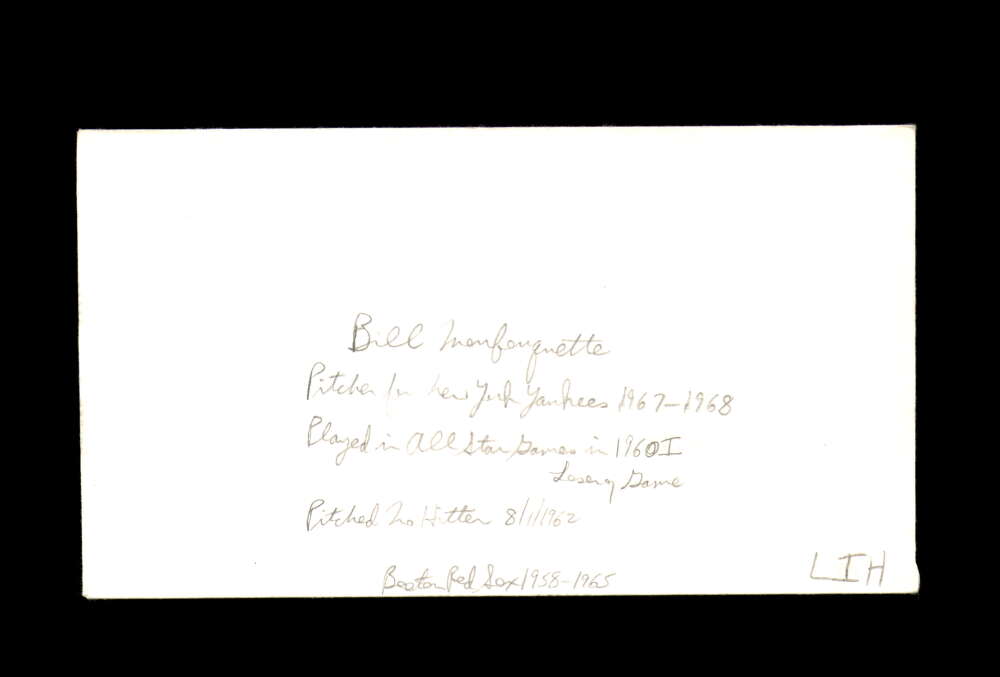 Bill Monbouquette
Pitcher for New York Yankees 1967-1968
Played in All Star Games in 1960I
Loser of Game
Pitched No Hitter 8/1/1962
Boston Red Sox 1958-1965
LIH